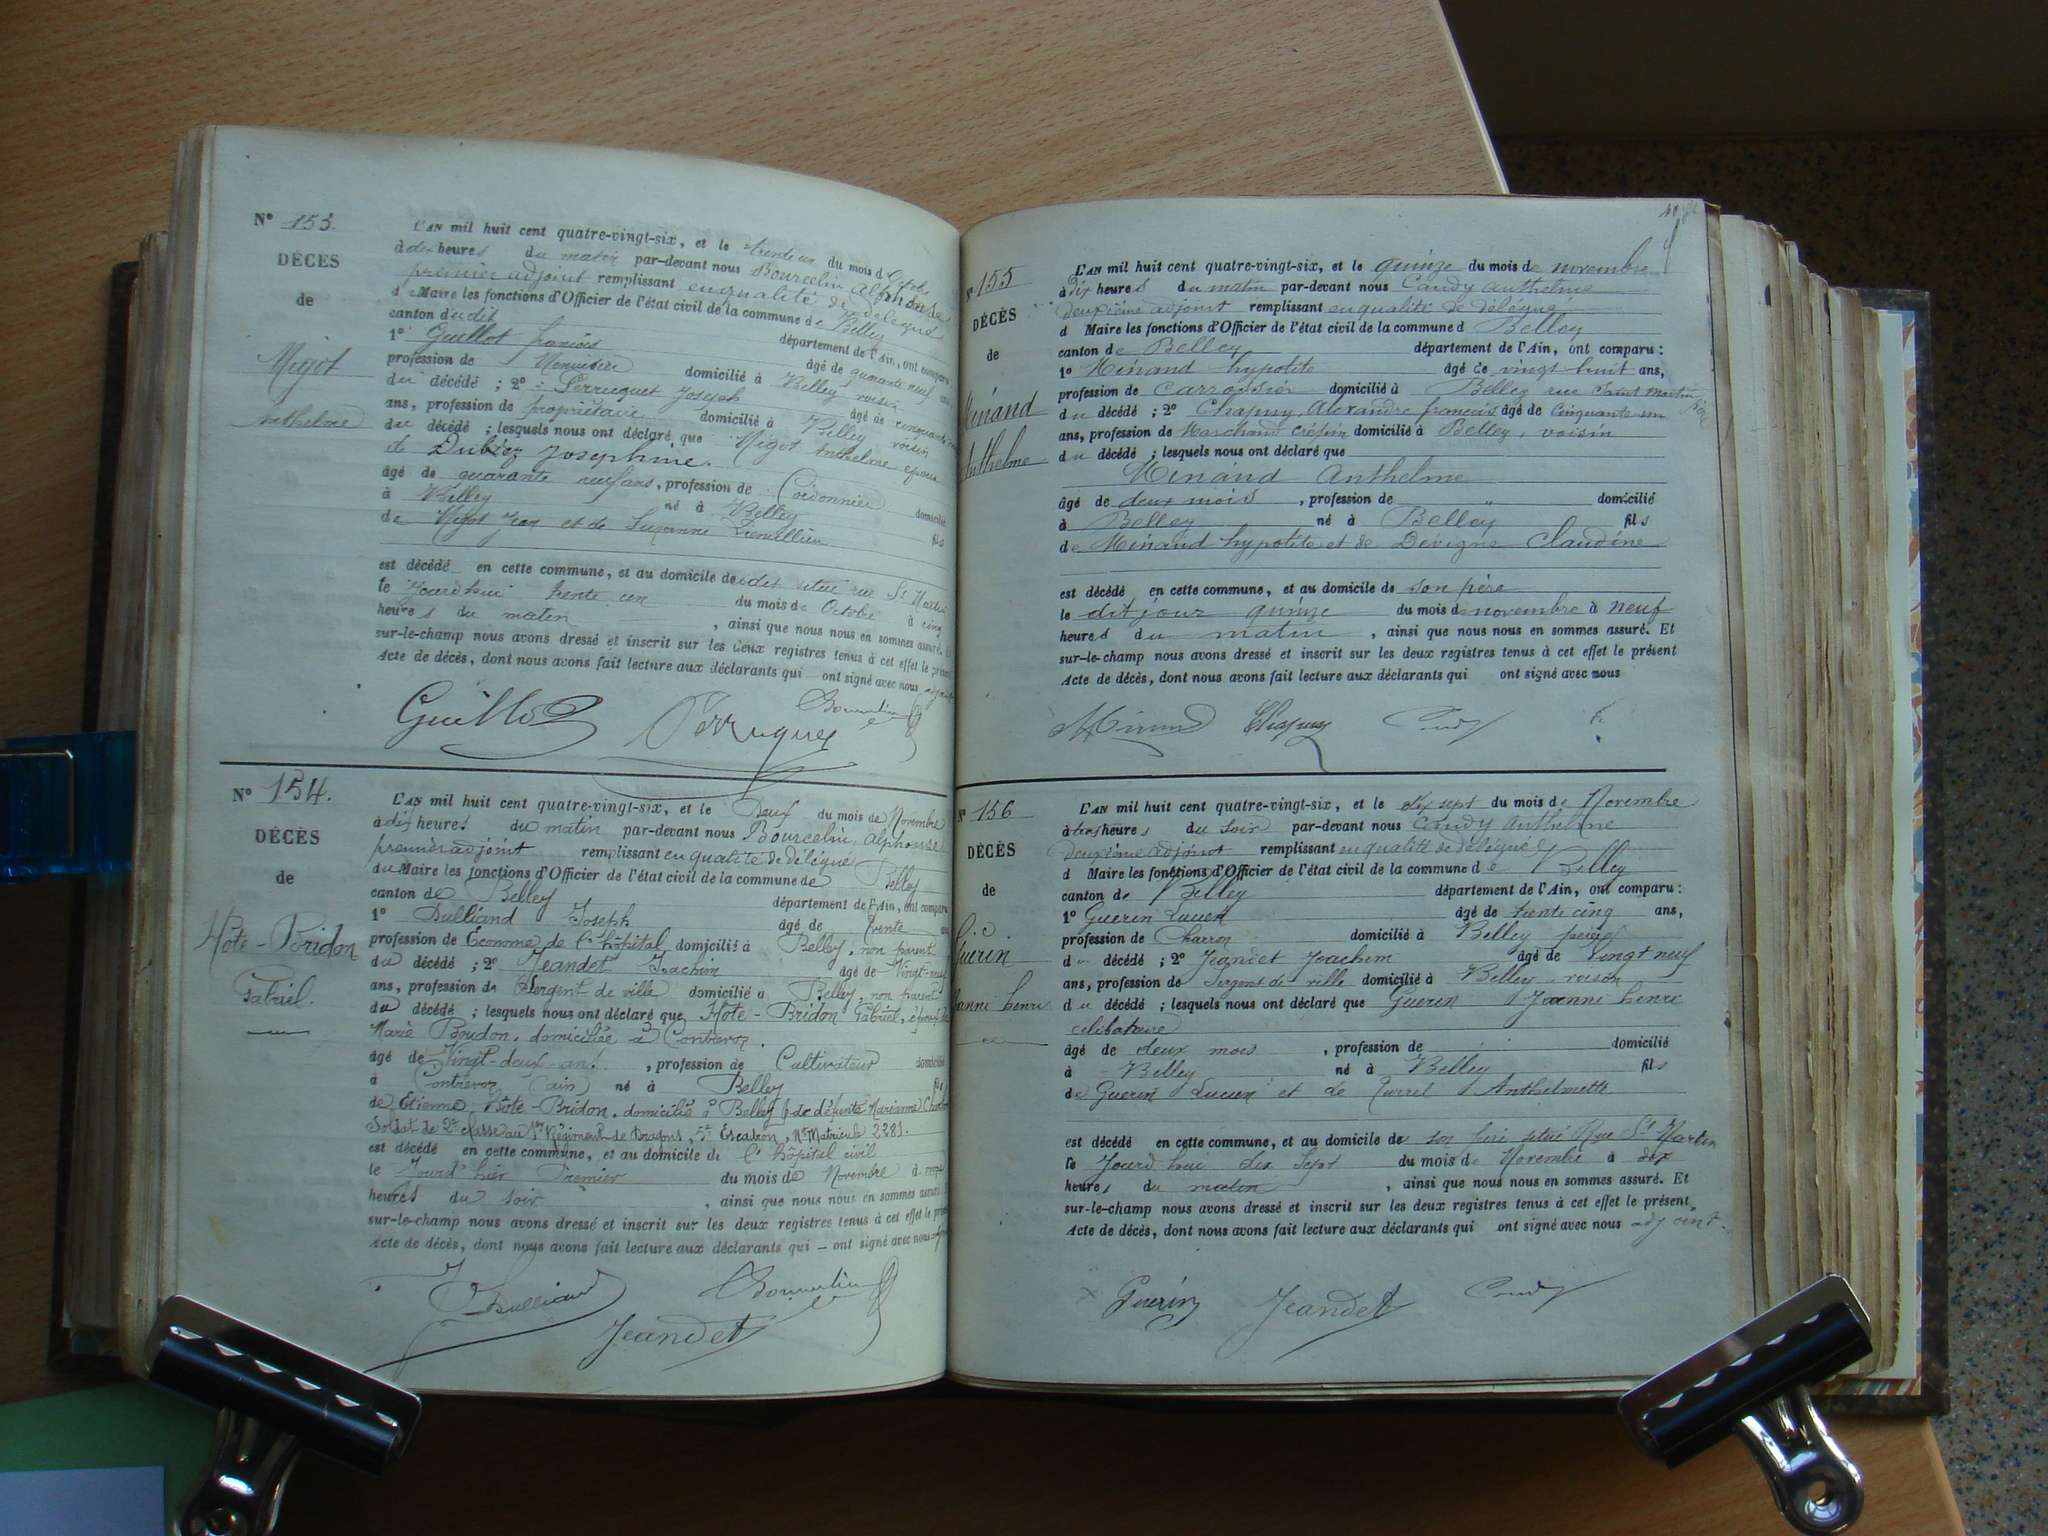 N° 153.
DÉCÈS
de
Migot
Anthelme
L'AN mil huit cent quatre-vingt-six, et le trente un du mois d'Octobre
à dix heures du matin par-devant nous Bourcelin Alphonse
premier adjoint remplissant en qualité de délégué
d Maire les fonctions d'Officier de l'état civil de la commune de Belley
canton dudit département de l'Ain, ont comparu
1° Guillot francois âgé de quarante neuf ans
profession de Menuisier domicilié à Belley voisin
du décédé ; 2° Perruquet Joseph âgé de cinquante
ans, profession de propriétaire domicilié à Belley voisin
du décédé ; lesquels nous ont déclaré que Migot Anthelme époux
de Dubiez Josephine.
âgé de quarante neuf ans, profession de Cordonnier domicilié
à Belley né à Belley fils
de Migot Jean et de Suzanne
est décédé en cette commune, et au domicile de situé rue St Martin
le Jourd'hui trente un du mois de Octobre à cinq
heures du matin, ainsi que nous nous en sommes assuré. Et
sur-le-champ nous avons dressé et inscrit sur les deux registres tenus à cet effet le présent
Acte de décès, dont nous avons fait lecture aux déclarants qui ont signé avec nous adjoint
Guillot Perruquet Bourcelin
N° 154.
DÉCÈS
de
Hote-Bridon
Gabriel.
L'AN mil huit cent quatre-vingt-six, et le Deux du mois de Novembre
à dix heures du matin par-devant nous Bourcelin, Alphonse
premier adjoint remplissant en qualité de délégué
du Maire les fonctions d'Officier de l'état civil de la commune de Belley
canton de Belley département de l'Ain, ont comparu
1° Dulliand Joseph âgé de trente ans
profession de Économe de l'hôpital domicilié à Belley, non parent
du décédé ; 2° Jeandet Joachim âgé de Vingt-neuf
ans, profession de Sergent de ville domicilié à Belley, non parent
du décédé ; lesquels nous ont déclaré que Hote-Bridon Gabriel, époux de
Marie Boudon, domiciliée à Contrevoz.
âgé de Vingt-deux ans, profession de Cultivateur domicilié
à Contrevoz (ain) né à Belley fils
de Etienne Hote-Bridon, domicilié à Belley & de défunte Marianne
Soldat de 2e classe au 1er Régiment de Dragons, 5e Escadron, N° Matricule 2281.
est décédé en cette commune, et au domicile de l'hôpital civil
le Jourd'hier Premier du mois de Novembre à onze
heures du soir, ainsi que nous nous en sommes assuré
sur-le-champ nous avons dressé et inscrit sur les deux registres tenus à cet effet le présent
Acte de décès, dont nous avons fait lecture aux déclarants qui — ont signé avec nous
J Dulliand Bourcelin
Jeandet
N° 155
DÉCÈS
de
Minand
Anthelme
L'AN mil huit cent quatre-vingt-six, et le quinze du mois de novembre
à dix heures du matin par-devant nous Caudy Anthelme
deuxième adjoint remplissant en qualité de délégué
d Maire les fonctions d'Officier de l'état civil de la commune d Belley
canton de Belley département de l'Ain, ont comparu :
1° Minand hypolite âgé de vingt huit ans,
profession de carrossier domicilié à Belley rue Saint Martin père
du décédé ; 2° Chapuy Alexandre francois âgé de cinquante un
ans, profession de Marchand crépin domicilié à Belley, voisin
du décédé ; lesquels nous ont déclaré que
Minand Anthelme
âgé de deux mois, profession de " domicilié
à Belley né à Belley fils
de Minand hypolite et de Dévigne Claudine
est décédé en cette commune, et au domicile de son père
le dit jour quinze du mois de novembre à neuf
heures du matin, ainsi que nous nous en sommes assuré. Et
sur-le-champ nous avons dressé et inscrit sur les deux registres tenus à cet effet le présent
Acte de décès, dont nous avons fait lecture aux déclarants qui ont signé avec nous
Minand Chapuy Caudy
N° 156
DÉCÈS
de
Guerin
Joanni henri
L'AN mil huit cent quatre-vingt-six, et le dix sept du mois de Novembre
à trois heures du soir par-devant nous Caudy Anthelme
Deuxième adjoint remplissant en qualité de délégué
d Maire les fonctions d'Officier de l'état civil de la commune de Belley
canton de Belley département de l'Ain, ont comparu :
1° Guerin Lucien âgé de trente cinq ans,
profession de Charron domicilié à Belley père
du décédé ; 2° Jeandet Joachim âgé de vingt neuf
ans, profession de Sergent de ville domicilié à Belley voisin
du décédé ; lesquels nous ont déclaré que Guerin Joanni henri
célibataire
âgé de deux mois, profession de domicilié
à Belley né à Belley fils
de Guerin Lucien et de Anthelmette
est décédé en cette commune, et au domicile de son père situé Rue St Martin
le Jourd'hui dix sept du mois de Novembre à dix
heures du matin, ainsi que nous nous en sommes assuré. Et
sur-le-champ nous avons dressé et inscrit sur les deux registres tenus à cet effet le présent
Acte de décès, dont nous avons fait lecture aux déclarants qui ont signé avec nous adjoint.
Guérin Jeandet Caudy